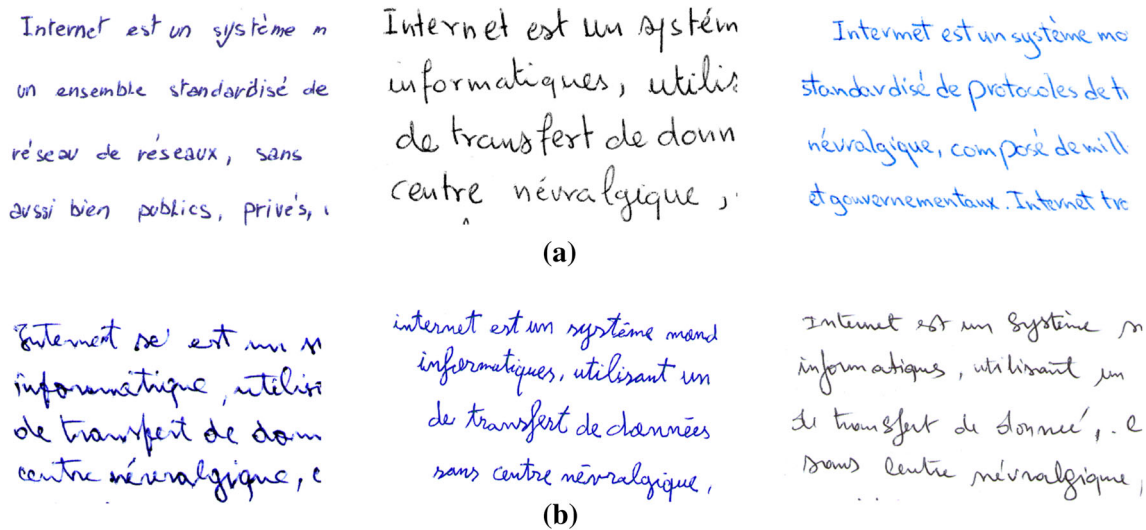 Internet est un système m
un ensemble standardisé de
réseau de réseaux, sans
aussi bien publics, privés,
Internet est un systém
informatiques, utilis
de transfert de donn
centre névralgique,
Intermet est un système mo
standardisé de protocoles de t
névralgique, composé de mill
et gouvernementaux. Internet tra
(a)
Internet se est un s
informatique, utilisa
de transfert de donn
centre névralgique, c
internet est un système mond
informatiques, utilisant un
de transfert de données
sans centre névralgique,
Internet est un Système
informatiques, utilisant un
de transfert de donneé,
sans centre névralgique,
(b)